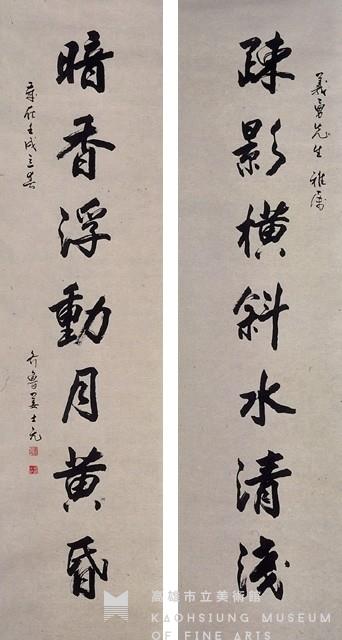 義勇先生雅屬
疎影橫斜水清淺
暗香浮動月黃昏
歲在壬戌立春
齊魯姜士元
高雄市立美術館
KAOHSIUNG MUSEUM
OF FINE ARTS